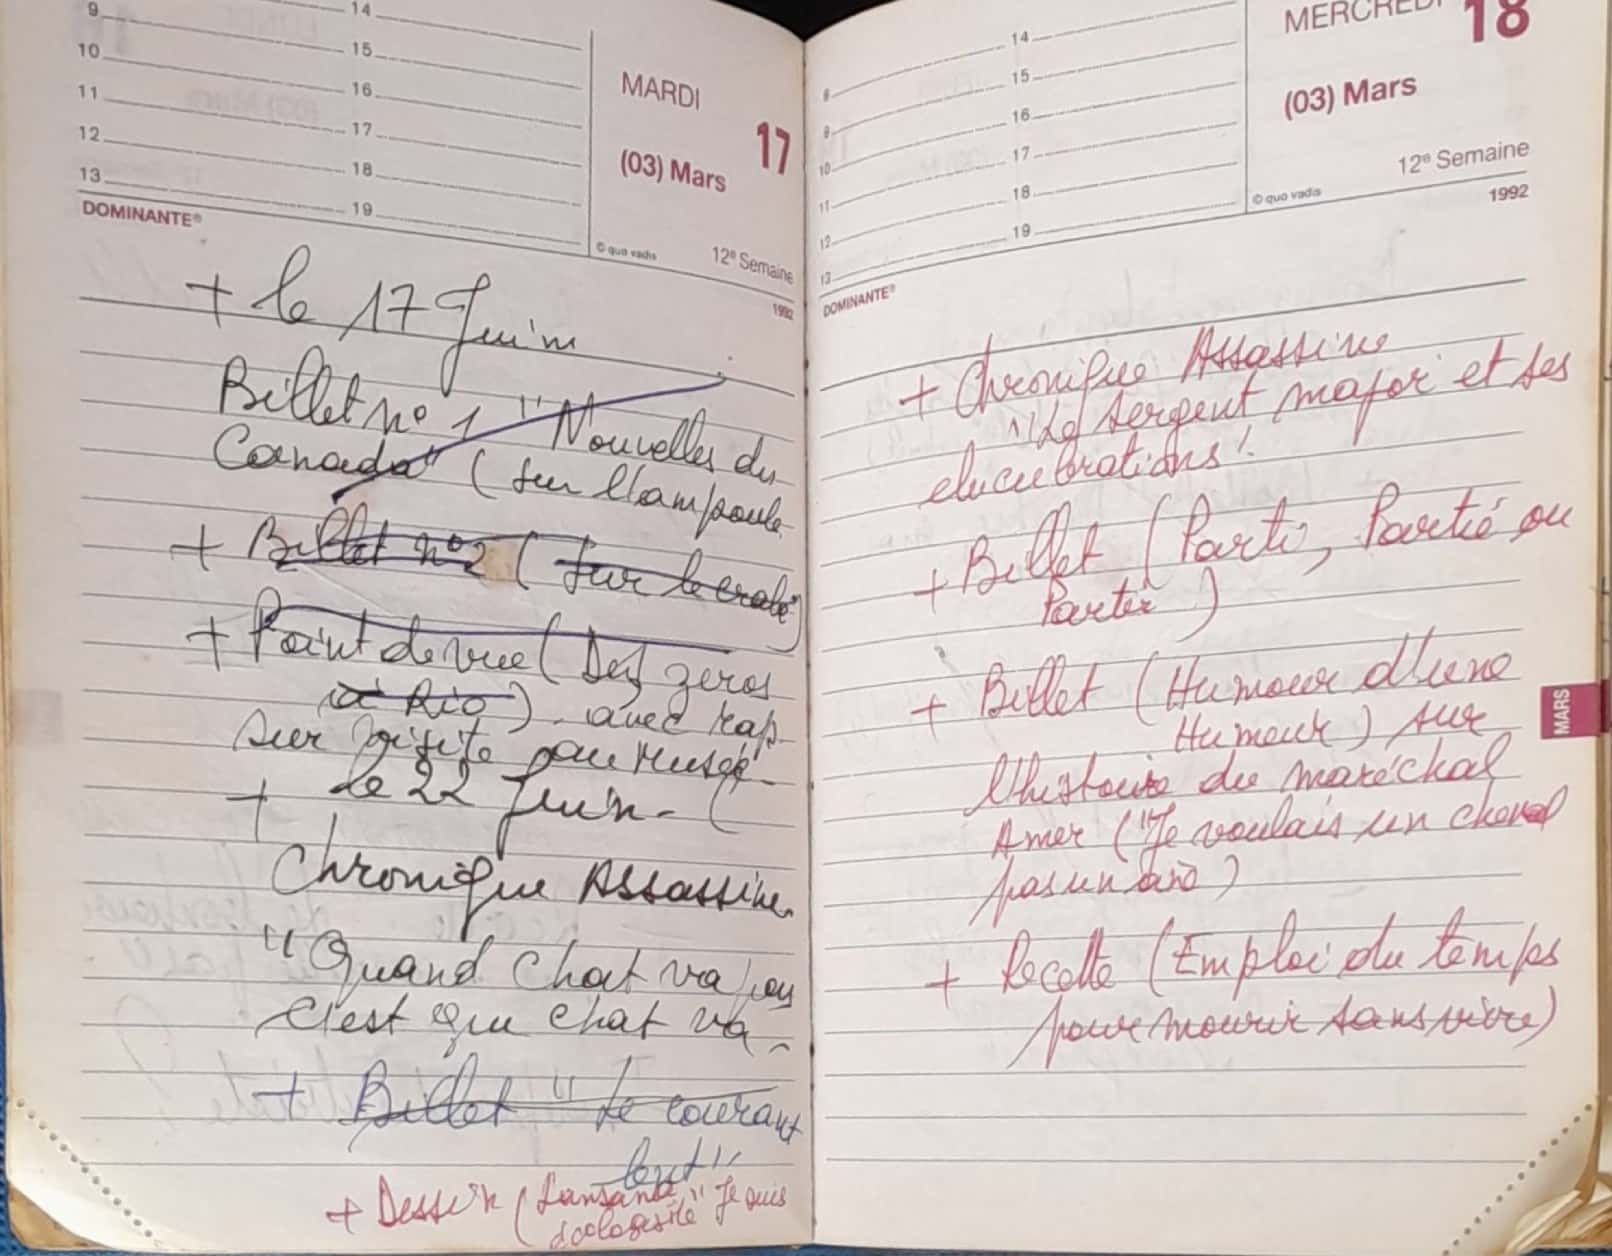 9 14
10 15
11 16
12 17
13 18
19
MARDI
17
(03) Mars
DOMINANTE®
© quo vadis
12e Semaine
1992
+ le 17 Juin
Billet n° 1 "Nouvelles du
Canada" (sur l'ampoule
+ Billet n° 2 (sur le crabe)
+ Point de vue (Des zéros
à Rio) - avec rap
sur visite au Musée -
+ le 22 Juin - (
Chronique Assassine
"Quand chat va pas
c'est que chat va
+ Billet "Le courant
lent"
+ Dessin ( "Je suis
MERCREDI
18
(03) Mars
8 14
9 15
10 16
11 17
12 18
13 19
© quo vadis
12e Semaine
1992
DOMINANTE®
+ Chronique Assassine
"Le sergent major et ses
elucubrations"
+ Billet (Parti, Partie ou
Partir)
+ Billet (Humour d'une
Humeur) sur
l'histoire du maréchal
Amer ("Je voulais un cheval
pas un âne)
+ Recette (Emploi du temps
pour mourir sans vivre)
MARS